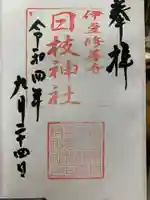 奉拝
伊豆修善寺
日枝神社
令和四年
九月二十四日